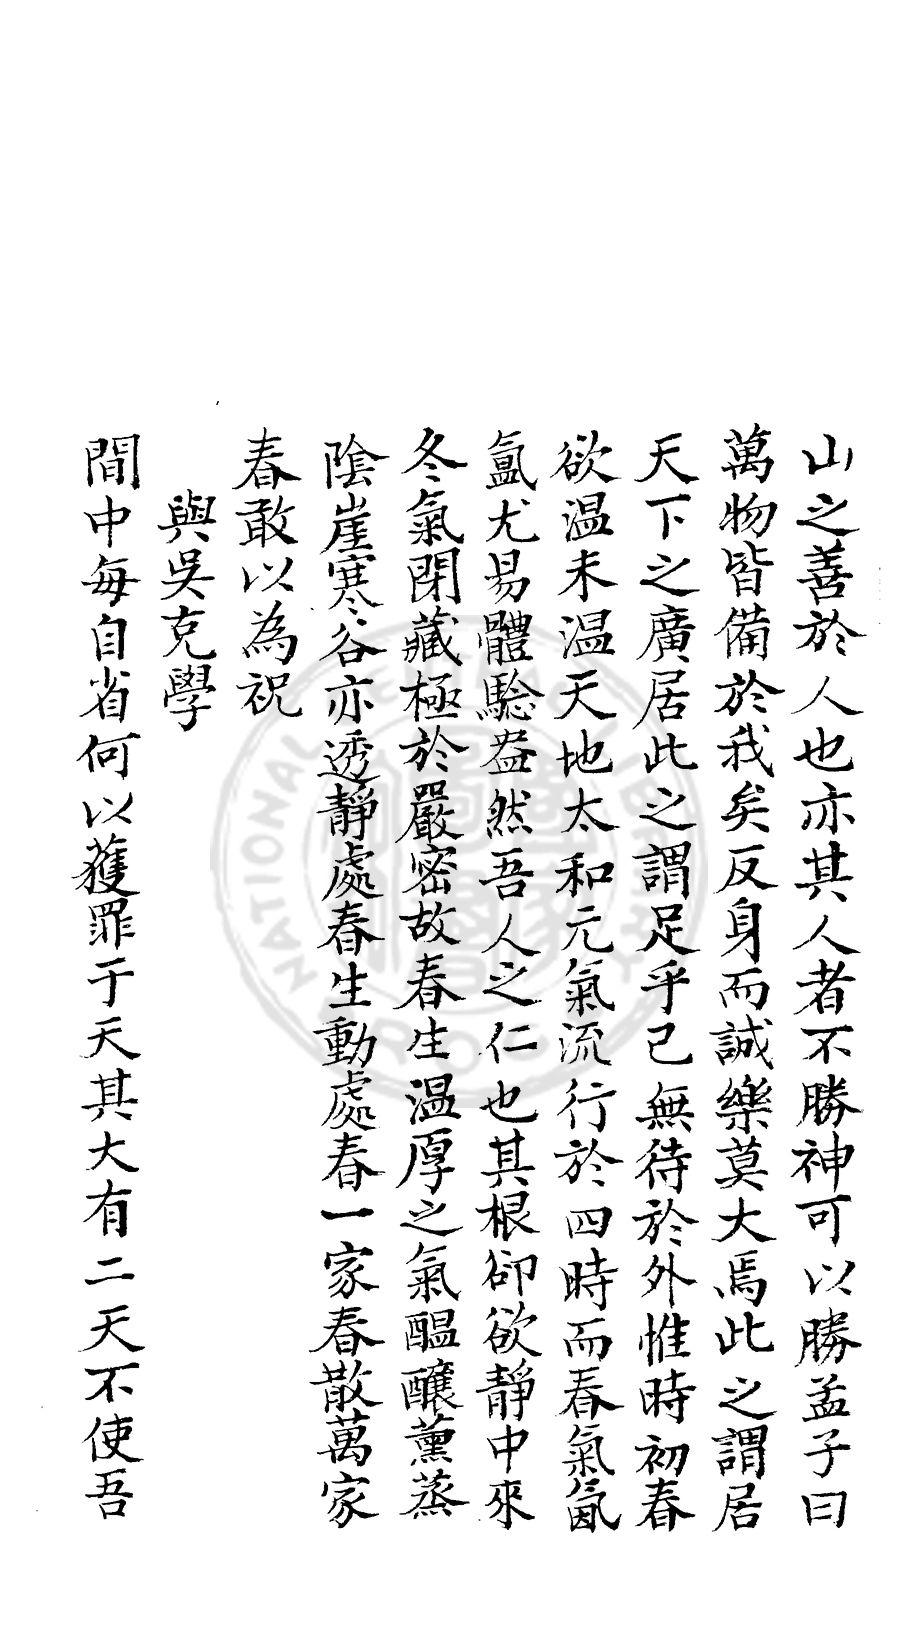 山之善於人也亦其人者不勝神可以勝孟子曰
萬物皆備於我矣反身而誠樂莫大焉此之謂居
天下之廣居此之謂足乎己無待於外惟時初春
欲温未温天地太和元氣流行於四時而春氣氤
氳尤易體驗盎然吾人之仁也其根卻欲靜中來
冬氣閉藏極於嚴密故春生温厚之氣醖釀薰蒸
陰崖寒谷亦透靜處春生動處春一家春散萬家
春敢以為祝
與吳克學
間中每自省何以獲罪于天其大有二天不使吾
NATIONAL CENTRAL LIBRARY